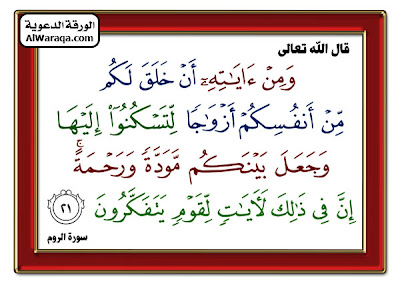 الورقة الدعوية
AlWaraqa.com
قال الله تعالى
وَمِنْ ءَايَـٰتِهِۦٓ أَنْ خَلَقَ لَكُم
مِّنْ أَنفُسِكُمْ أَزْوَٰجًا لِّتَسْكُنُوٓا۟ إِلَيْهَا
وَجَعَلَ بَيْنَكُم مَّوَدَّةً وَرَحْمَةً ۚ
إِنَّ فِى ذَٰلِكَ لَـَٔايَـٰتٍ لِّقَوْمٍ يَتَفَكَّرُونَ ٢١
سورة الروم